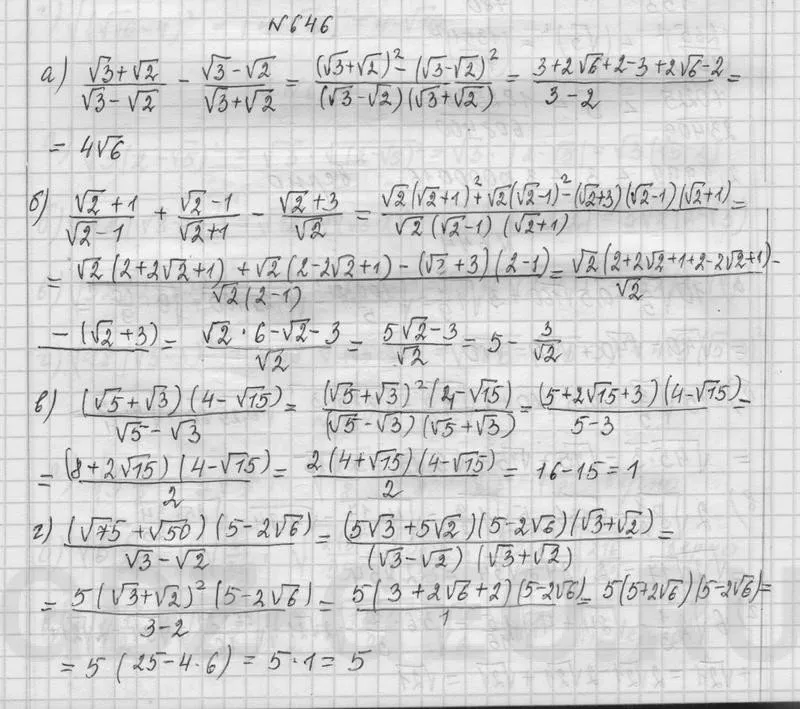 №646
а) (√3+√2)/(√3-√2) - (√3-√2)/(√3+√2) = ((√3+√2)² - (√3-√2)²)/((√3-√2)(√3+√2)) = (3+2√6+2-3+2√6-2)/(3-2) =
= 4√6
б) (√2+1)/(√2-1) + (√2-1)/(√2+1) - (√2+3)/√2 = (√2(√2+1)²+√2(√2-1)²-(√2+3)(√2-1)(√2+1))/(√2(√2-1)(√2+1)) =
= (√2(2+2√2+1)+√2(2-2√2+1)-(√2+3)(2-1))/(√2(2-1)) = (√2(2+2√2+1+2-2√2+1)-)/√2
-(√2+3) = (√2·6-√2-3)/√2 = (5√2-3)/√2 = 5 - 3/√2
в) ((√5+√3)(4-√15))/(√5-√3) = ((√5+√3)²(4-√15))/((√5-√3)(√5+√3)) = ((5+2√15+3)(4-√15))/(5-3) =
= ((8+2√15)(4-√15))/2 = (2(4+√15)(4-√15))/2 = 16-15=1
г) ((√75+√50)(5-2√6))/(√3-√2) = ((5√3+5√2)(5-2√6)(√3+√2))/((√3-√2)(√3+√2)) =
= (5(√3+√2)²(5-2√6))/(3-2) = (5(3+2√6+2)(5-2√6))/1 = 5(5+2√6)(5-2√6)=
= 5(25-4·6) = 5·1 = 5